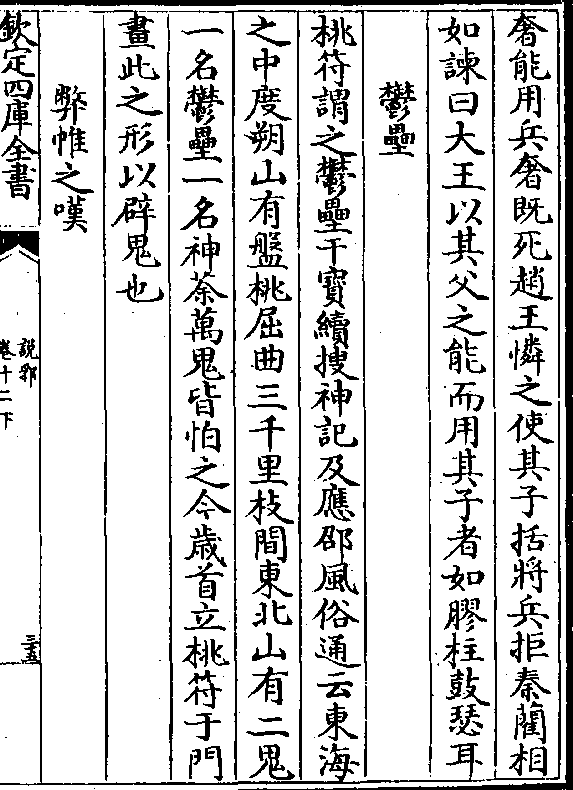 奢能用兵奢既死趙王憐之使其子括將兵拒秦藺相
如諫曰大王以其父之能而用其子者如膠柱鼓瑟耳
鬱壘
桃符謂之鬱壘干寶續搜神記及應邵風俗通云東海
之中度朔山有盤桃屈曲三千里枝間東北山有二鬼
一名鬱壘一名神荼萬鬼皆怕之今歳首立桃符于門
畫此之形以辟鬼也
弊帷之嘆
欽定四庫全書
說郛
卷十二下
三五